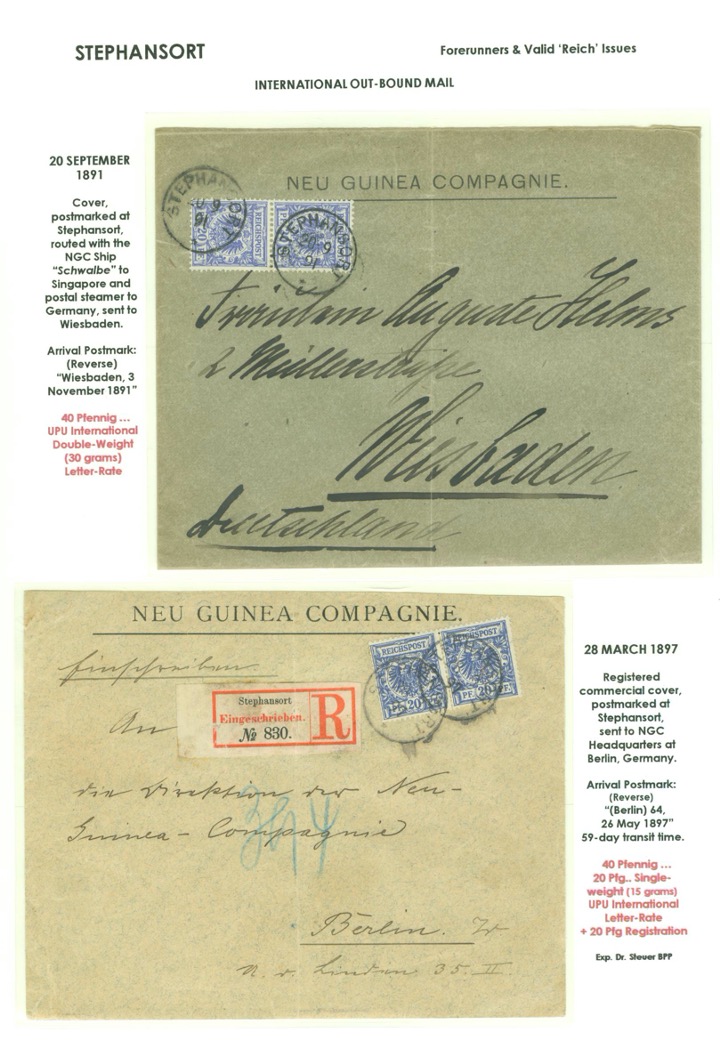 STEPHANSORT
Forerunners & Valid 'Reich' Issues
INTERNATIONAL OUT-BOUND MAIL
20 SEPTEMBER
1891
Cover,
postmarked at
Stephansort,
routed with the
NGC Ship
"Schwalbe" to
Singapore and
postal steamer to
Germany, sent to
Wiesbaden.
Arrival Postmark:
(Reverse)
"Wiesbaden, 3
November 1891"
40 Pfennig ...
UPU International
Double-Weight
(30 grams)
Letter-Rate
NEU GUINEA COMPAGNIE.
STEPHANSORT
20 9
91
REICHSPOST
20
STEPHANSORT
20 9
91
Fräulein Auguste Helms
2 Müllerstraße
Wiesbaden
Deutschland
NEU GUINEA COMPAGNIE.
REICHSPOST
PF. 20
REICHSPOST
PF. 20 PF.
Einschreiben.
Stephansort
Eingeschrieben.
№ 830.
R
An
die Direktion der Neu-
Guinea-Compagnie
Berlin. W
U. d. Linden 35. II.
28 MARCH 1897
Registered
commercial cover,
postmarked at
Stephansort,
sent to NGC
Headquarters at
Berlin, Germany.
Arrival Postmark:
(Reverse)
"(Berlin) 64,
26 May 1897"
59-day transit time.
40 Pfennig ...
20 Pfg.. Single-
weight (15 grams)
UPU International
Letter-Rate
+ 20 Pfg Registration
Exp. Dr. Steuer BPP